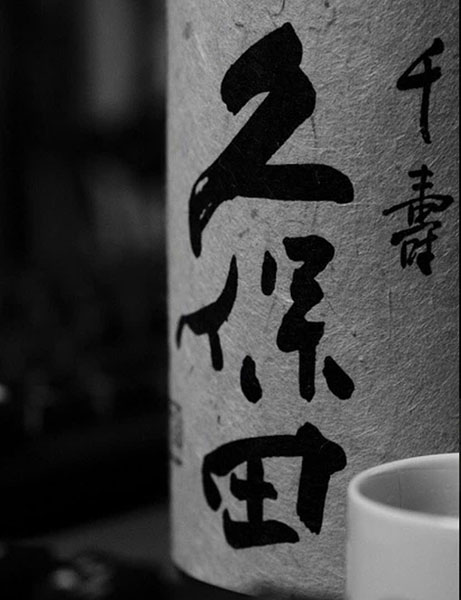 久保田
千寿